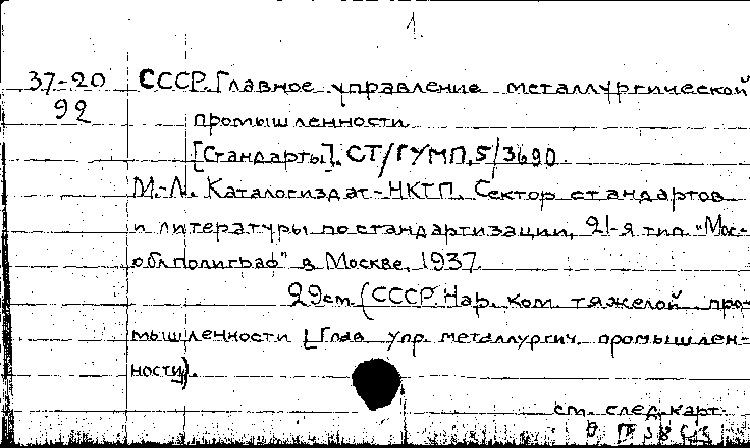 1.
37-20 СССР. Главное управление металлургической
92 промышленности
[Стандарты]. СТ/ГУМП.5/3690.
М.-Л. Каталогиздат-НКТП. Сектор стандартов
и литературы по стандартизации, 21-я тип. "Мос-
облполиграф" в Москве, 1937
29см. (СССР. Нар. ком. тяжелой про-
мышленности [Глав. упр. металлургич. промышлен-
ности]).
см. след. карт.